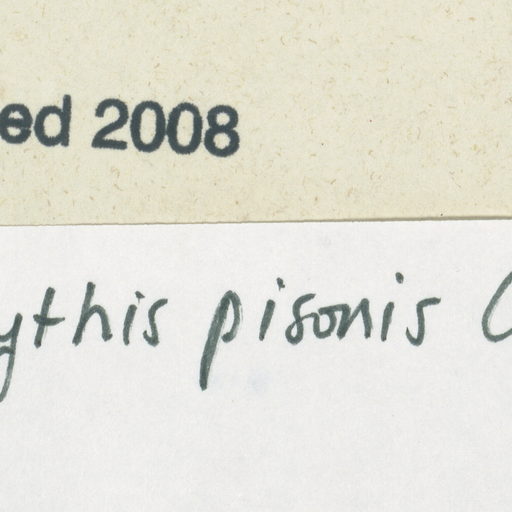 ed 2008
ythis pisonis C